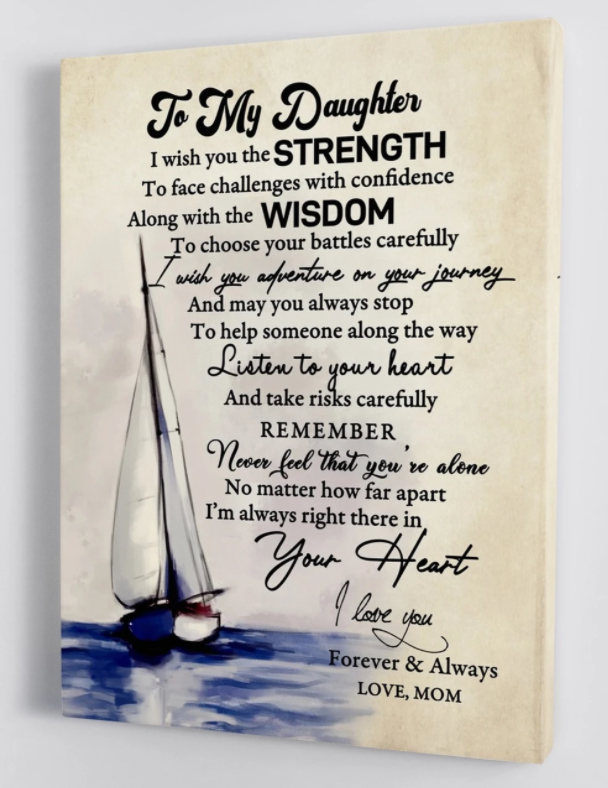 To My Daughter
I wish you the STRENGTH
To face challenges with confidence
Along with the WISDOM
To choose your battles carefully
I wish you adventure on your journey
And may you always stop
To help someone along the way
Listen to your heart
And take risks carefully
REMEMBER
Never feel that you're alone
No matter how far apart
I'm always right there in
Your Heart
I love you
Forever & Always
LOVE, MOM